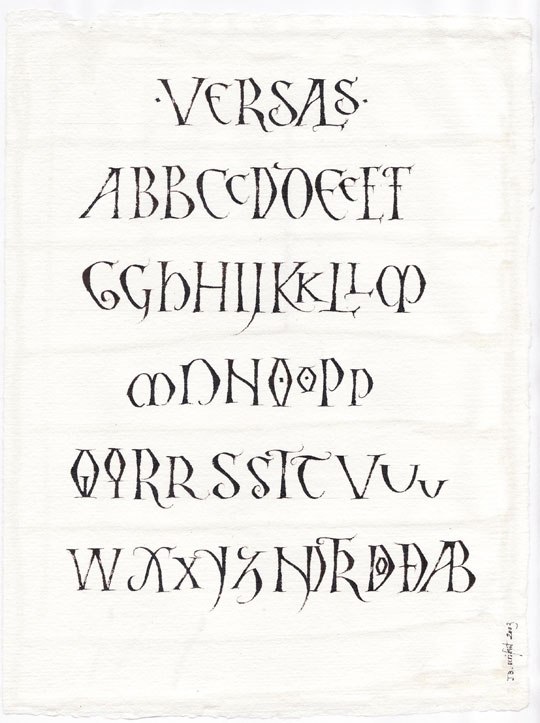 ·VERSAS·
ABBCCDOEEEF
GGhHIJKKLLM
MNNOOPP
QQRRSSTTVUU
WXXYZ
2003